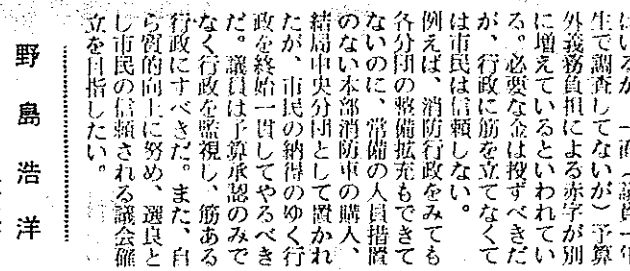 はいるが、一面（議員一年
生で調査してないが）予算
外義務負担による赤字が別
に増えているといわれてい
る。必要な金は投ずべきだ
が、行政に筋を立てなくて
は市民は信頼しない。
例えば、消防行政をみても
各分団の整備拡充もできて
ないのに、常備の人員措置
のない本部消防車の購入、
結局中央分団として置かれ
たが、市民の納得のゆく行
政を終始一貫してやるべき
だ。議員は予算承認のみで
なく行政を監視し、筋ある
行政にすべきだ。また、自
ら質的向上に努め、選良と
し市民の信頼される議会確
立を目指したい。
野島浩洋